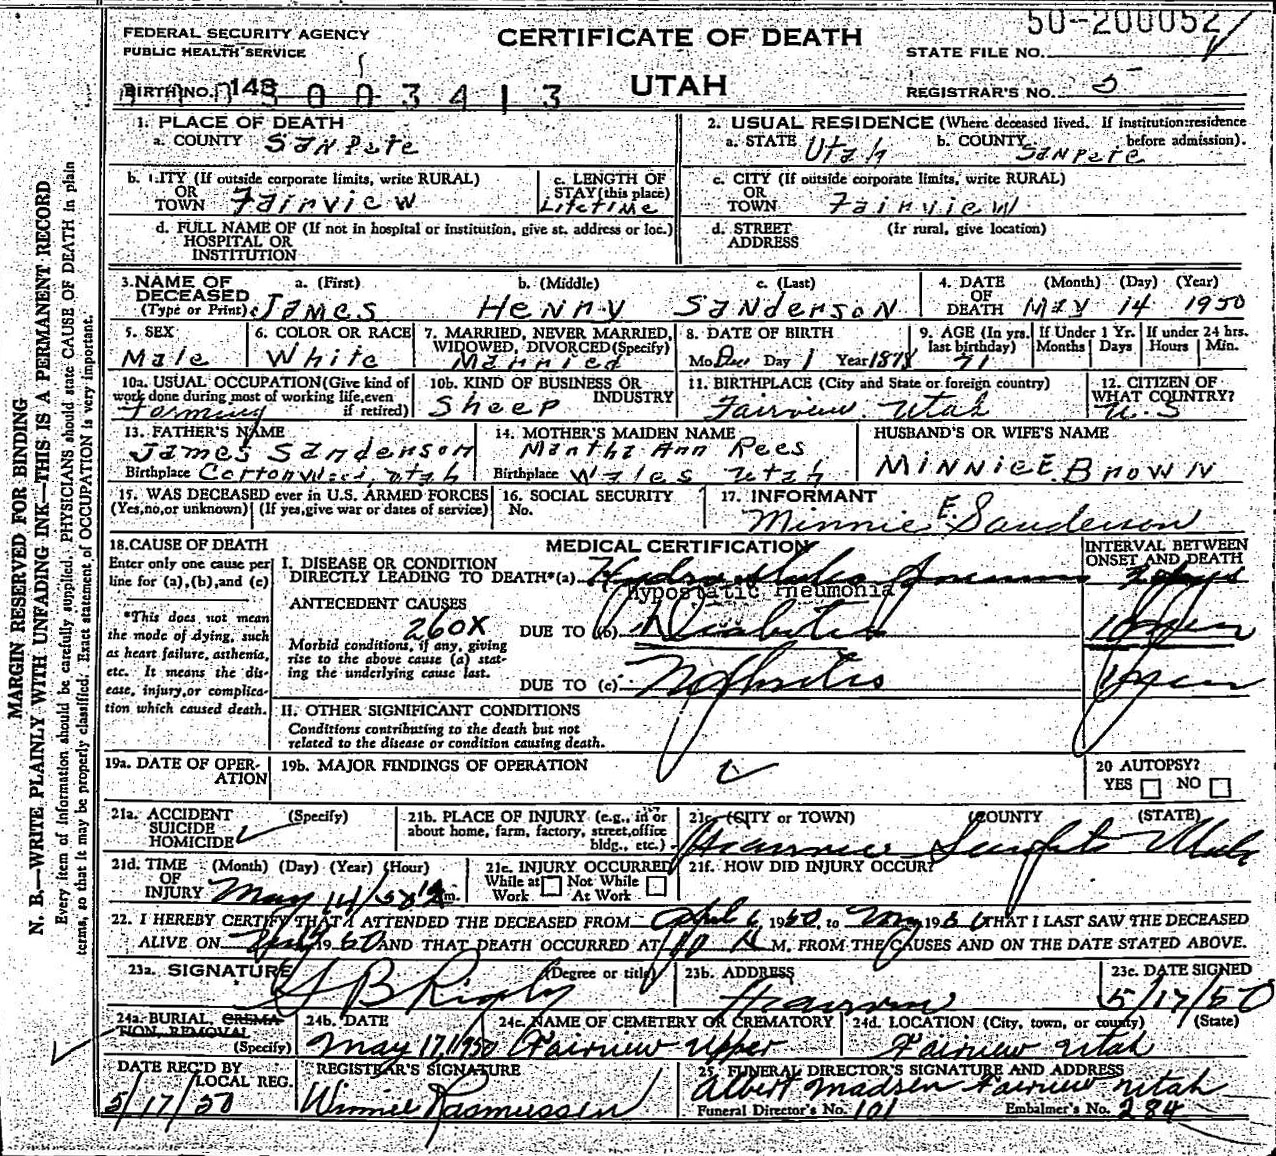 50-200052
FEDERAL SECURITY AGENCY
PUBLIC HEALTH SERVICE
CERTIFICATE OF DEATH
UTAH
STATE FILE NO.
BIRTH NO. 143 003413
REGISTRAR'S NO. 5
MARGIN RESERVED FOR BINDING
N. B.—WRITE PLAINLY WITH UNFADING INK—THIS IS A PERMANENT RECORD
Every item of information should be carefully supplied. PHYSICIANS should state CAUSE OF DEATH in plain
terms, so that it may be properly classified. Exact statement of OCCUPATION is very important.
1. PLACE OF DEATH
a. COUNTY Sanpete
2. USUAL RESIDENCE (Where deceased lived. If institution: residence before admission).
a. STATE Utah b. COUNTY Sanpete
b. CITY (If outside corporate limits, write RURAL)
OR
TOWN Fairview
c. LENGTH OF
STAY (this place)
Lifetime
c. CITY (If outside corporate limits, write RURAL)
OR
TOWN Fairview
d. FULL NAME OF (If not in hospital or institution, give st. address or loc.)
HOSPITAL OR
INSTITUTION
d. STREET (If rural, give location)
ADDRESS
3. NAME OF DECEASED (Type or Print) a. (First) b. (Middle) c. (Last)
James Henry Sanderson
4. DATE OF DEATH (Month) (Day) (Year)
May 14 1950
5. SEX
Male
6. COLOR OR RACE
White
7. MARRIED, NEVER MARRIED,
WIDOWED, DIVORCED (Specify)
Married
8. DATE OF BIRTH
Mo. Dec Day 1 Year 1878
9. AGE (In yrs. last birthday)
71
If Under 1 Yr.
Months Days
If under 24 hrs.
Hours Min.
10a. USUAL OCCUPATION (Give kind of
work done during most of working life, even
if retired)
Farming
10b. KIND OF BUSINESS OR
INDUSTRY
Sheep
11. BIRTHPLACE (City and State or foreign country)
Fairview Utah
12. CITIZEN OF
WHAT COUNTRY?
U.S
13. FATHER'S NAME
James Sanderson
Birthplace Cottonwood, Utah
14. MOTHER'S MAIDEN NAME
Martha Ann Rees
Birthplace Wales Utah
HUSBAND'S OR WIFE'S NAME
Minnie E. Brown
15. WAS DECEASED ever in U.S. ARMED FORCES
(Yes, no, or unknown) (If yes, give war or dates of service)
16. SOCIAL SECURITY
No.
17. INFORMANT
Minnie E. Sanderson
18. CAUSE OF DEATH
Enter only one cause per
line for (a), (b), and (c)
*This does not mean
the mode of dying, such
as heart failure, asthenia,
etc. It means the dis-
ease, injury, or complica-
tion which caused death.
MEDICAL CERTIFICATION
INTERVAL BETWEEN
ONSET AND DEATH
I. DISEASE OR CONDITION
DIRECTLY LEADING TO DEATH*(a)
2 days
Hypostatic Pneumonia
ANTECEDENT CAUSES
260X
DUE TO (b) Diabetes
Morbid conditions, if any, giving
rise to the above cause (a) stat-
ing the underlying cause last.
DUE TO (c) Nephritis
II. OTHER SIGNIFICANT CONDITIONS
Conditions contributing to the death but not
related to the disease or condition causing death.
19a. DATE OF OPER-
ATION
19b. MAJOR FINDINGS OF OPERATION
20 AUTOPSY?
YES NO
21a. ACCIDENT (Specify)
SUICIDE
HOMICIDE
21b. PLACE OF INJURY (e.g., in or
about home, farm, factory, street, office
bldg., etc.)
21c. (CITY or TOWN) (COUNTY) (STATE)
Fairview Sanpete Utah
21d. TIME (Month) (Day) (Year) (Hour)
OF
INJURY May 14/50 m.
21e. INJURY OCCURRED
While at Not While
Work At Work
21f. HOW DID INJURY OCCUR?
22. I HEREBY CERTIFY THAT I ATTENDED THE DECEASED FROM April 6 1950, to May 1950 THAT I LAST SAW THE DECEASED
ALIVE ON 1950 AND THAT DEATH OCCURRED AT M. FROM THE CAUSES AND ON THE DATE STATED ABOVE.
23a. SIGNATURE (Degree or title)
B Rigby
23b. ADDRESS
Fairview
23c. DATE SIGNED
5/17/50
24a. BURIAL, CREMA-
TION, REMOVAL
(Specify)
24b. DATE
May 17, 1950
24c. NAME OF CEMETERY OR CREMATORY
Fairview Upper
24d. LOCATION (City, town, or county) (State)
Fairview Utah
DATE REC'D BY
LOCAL REG.
5/17/50
REGISTRAR'S SIGNATURE
Winnie Rasmussen
25. FUNERAL DIRECTOR'S SIGNATURE AND ADDRESS
Albert Madsen Fairview Utah
Funeral Director's No. 101 Embalmer's No. 284